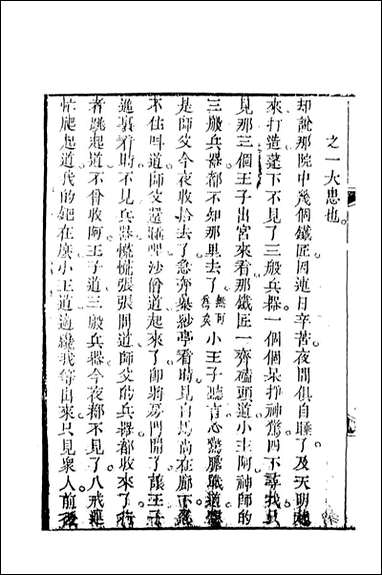 之一大患也。
却說那院中幾個鐵匠因連日辛苦夜間俱自睡了及天明起
來打造蓬下不見了三般兵器一個個呆掙神驚四下尋找只
見那三個王子出宮來看那鐵匠一齊磕頭道小主阿神師的
三般兵器都不知那里去了小王子聽言心驚膽戰道想
是師父今夜收拾去了急奔暴紗亭看時見白馬尚在廊下忍
不住叫道師父還睡哩沙僧道起來了卽將房門開了讓王子
進裏看時不見兵器慌慌張張問道師父的兵器都收來了行
者跳起道不曾收阿王子道三般兵器今夜都不見了八戒連
忙爬起道我的鈀在麽小王道適纔我等出來只見衆人前後